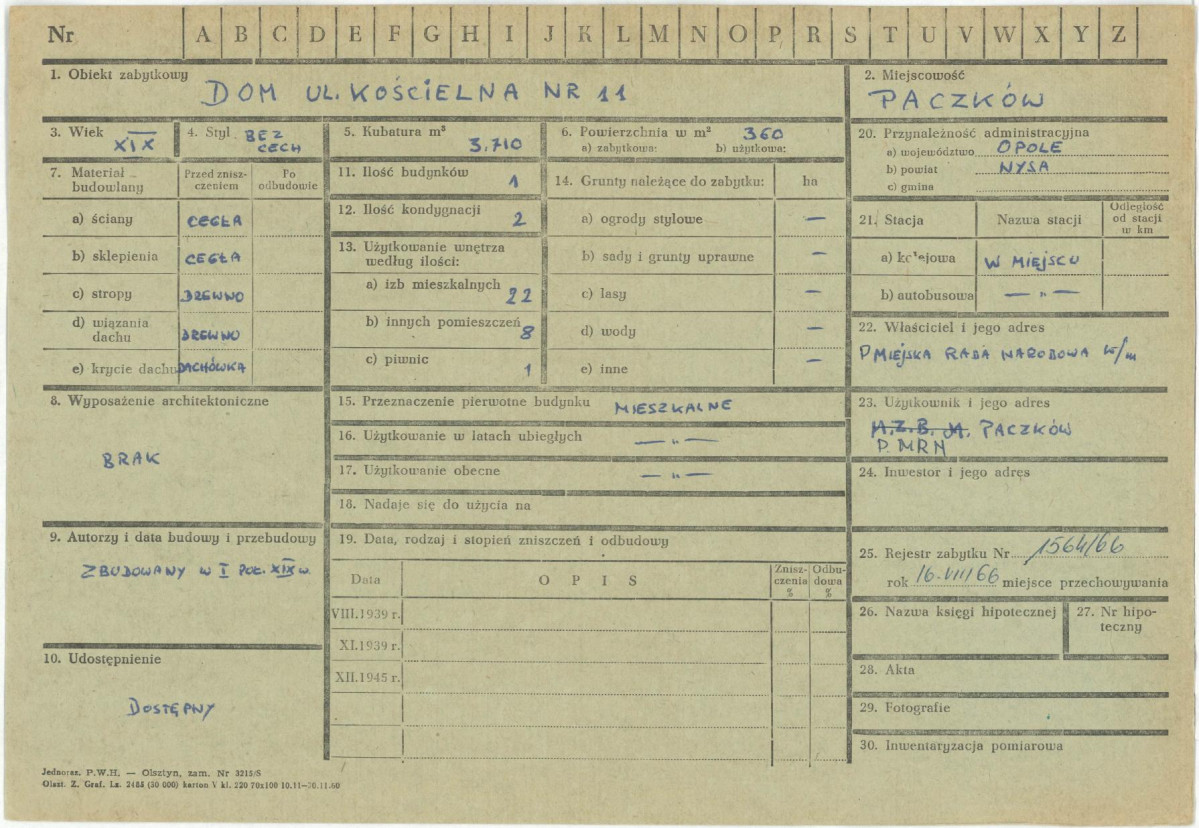 Nr A B C D E F G H I J K L M N O P R S T U V W X Y Z
1. Obiekt zabytkowy
DOM UL. KOŚCIELNA NR 11
2. Miejscowość
PACZKÓW
3. Wiek
XIX
4. Styl BEZ
CECH
5. Kubatura m³
3.710
6. Powierzchnia w m² 360
a) zabytkowa: b) użytkowa:
7. Materiał
budowlany
Przed znisz-
czeniem
Po
odbudowie
a) ściany CEGŁA
b) sklepienia CEGŁA
c) stropy DREWNO
d) wiązania
dachu DREWNO
e) krycie dachu DACHÓWKA
8. Wyposażenie architektoniczne
BRAK
9. Autorzy i data budowy i przebudowy
ZBUDOWANY W I POŁ. XIX w.
10. Udostępnienie
DOSTĘPNY
11. Ilość budynków
1
12. Ilość kondygnacji
2
13. Użytkowanie wnętrza
według ilości:
a) izb mieszkalnych
22
b) innych pomieszczeń
8
c) piwnic
1
14. Grunty należące do zabytku: ha
a) ogrody stylowe —
b) sady i grunty uprawne —
c) lasy —
d) wody —
e) inne —
15. Przeznaczenie pierwotne budynku MIESZKALNE
16. Użytkowanie w latach ubiegłych — „ —
17. Użytkowanie obecne — „ —
18. Nadaje się do użycia na
19. Data, rodzaj i stopień zniszczeń i odbudowy
Data OPIS
Znisz-
czenia
%
Odbu-
dowa
%
VIII.1939 r.
XI.1939 r.
XII.1945 r.
20. Przynależność administracyjna
a) województwo OPOLE
b) powiat NYSA
c) gmina
21. Stacja Nazwa stacji
Odległość
od stacji
w km
a) kolejowa W MIEJSCU
b) autobusowa — „ —
22. Właściciel i jego adres
P MIEJSKA RADA NARODOWA W/m
23. Użytkownik i jego adres
M.Z.B.M. PACZKÓW
P. MRN
24. Inwestor i jego adres
25. Rejestr zabytku Nr 1564/66
rok 16.VII/66 miejsce przechowywania
26. Nazwa księgi hipotecznej
27. Nr hipo-
teczny
28. Akta
29. Fotografie
30. Inwentaryzacja pomiarowa
Jednoraz. P.W.H. — Olsztyn, zam. Nr 3215/S
Olszt. Z. Graf. Lz. 2485 (30 000) karton V kl. 220 70x100 10.11—30.11.60